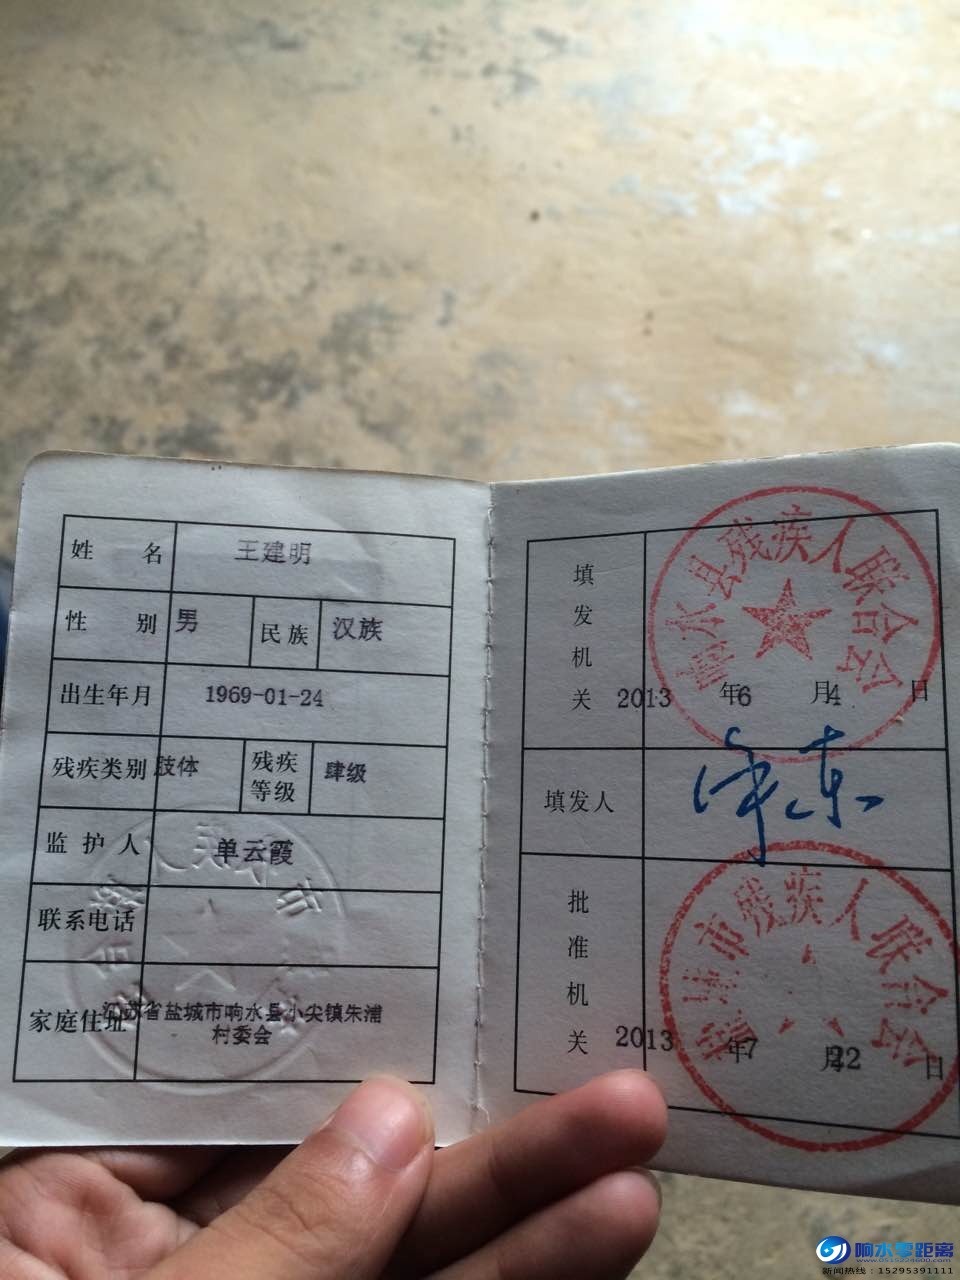 姓 名 王建明
性 别 男 民族 汉族
出生年月 1969-01-24
残疾类别 肢体 残疾等级 肆级
监护人 单云霞
联系电话
家庭住址 江苏省盐城市响水县小尖镇朱浦
村委会
响水县残疾人联合会
填发机关 2013 年6 月4 日
填发人
盐城市残疾人联合会
批准机关 2013 年7 月22 日
响水零距离
www.0515224600.com
新闻热线：15295391111